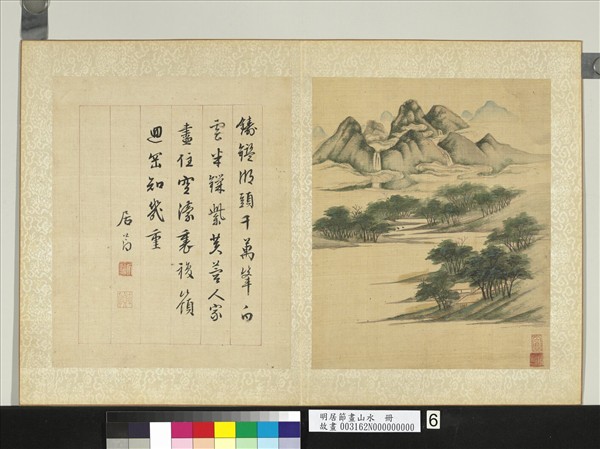 湖頭千萬峯白
雲半鎖紫芙蓉人家
盡住空濛裏複嶺
迴岡知幾重
居節
明居節畫山水 冊
故畫 003162N000000000
6